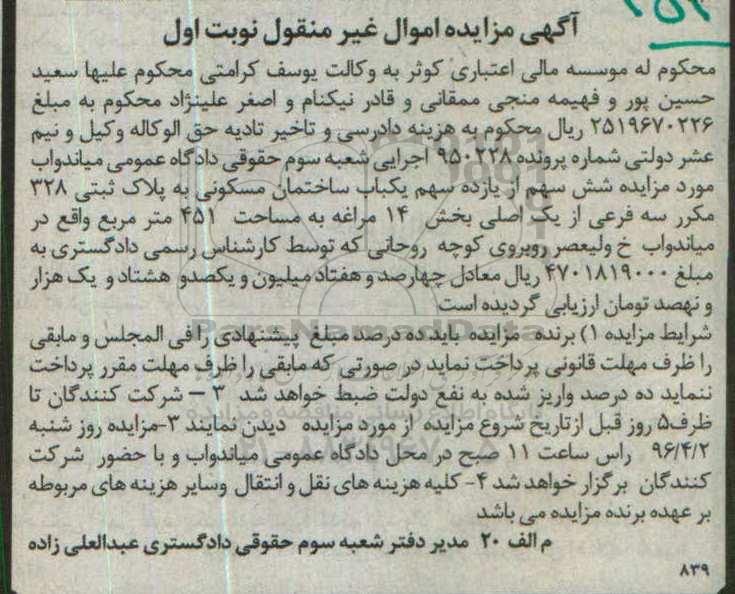 ۲۵۲
آگهی مزایده اموال غیر منقول نوبت اول
محکوم له موسسه مالی اعتباری کوثر به وکالت یوسف کرامتی محکوم علیها سعید
حسین پور و فهیمه منجی ممقانی و قادر نیکنام و اصغر علینژاد محکوم به مبلغ
۲۵۱۹۶۷۰۲۲۶ ریال محکوم به هزینه دادرسی و تاخیر تادیه حق الوکاله وکیل و نیم
عشر دولتی شماره پرونده ۹۵۰۲۲۸ اجرایی شعبه سوم حقوقی دادگاه عمومی میاندواب
مورد مزایده شش سهم از یازده سهم یکباب ساختمان مسکونی به پلاک ثبتی ۳۲۸
مکرر سه فرعی از یک اصلی بخش ۱۴ مراغه به مساحت ۴۵۱ متر مربع واقع در
میاندواب خ ولیعصر روبروی کوچه روحانی که توسط کارشناس رسمی دادگستری به
مبلغ ۴۷۰۱۸۱۹۰۰۰ ریال معادل چهارصد و هفتاد میلیون و یکصدو هشتاد و یک هزار
و نهصد تومان ارزیابی گردیده است
ParsNamadData
شرایط مزایده ۱) برنده مزایده باید ده درصد مبلغ پیشنهادی را فی المجلس و مابقی
را ظرف مهلت قانونی پرداخت نماید در صورتی که مابقی را ظرف مهلت مقرر پرداخت
ننماید ده درصد واریز شده به نفع دولت ضبط خواهد شد ۲ – شرکت کنندگان تا
ظرف۵ روز قبل ازتاریخ شروع مزایده از مورد مزایده دیدن نمایند ۳-مزایده روز شنبه
۹۶/۴/۲ راس ساعت ۱۱ صبح در محل دادگاه عمومی میاندواب و با حضور شرکت
کنندگان برگزار خواهد شد ۴- کلیه هزینه های نقل و انتقال وسایر هزینه های مربوطه
بر عهده برنده مزایده می باشد
م الف ۲۰ مدیر دفتر شعبه سوم حقوقی دادگستری عبدالعلی زاده
۸۳۹